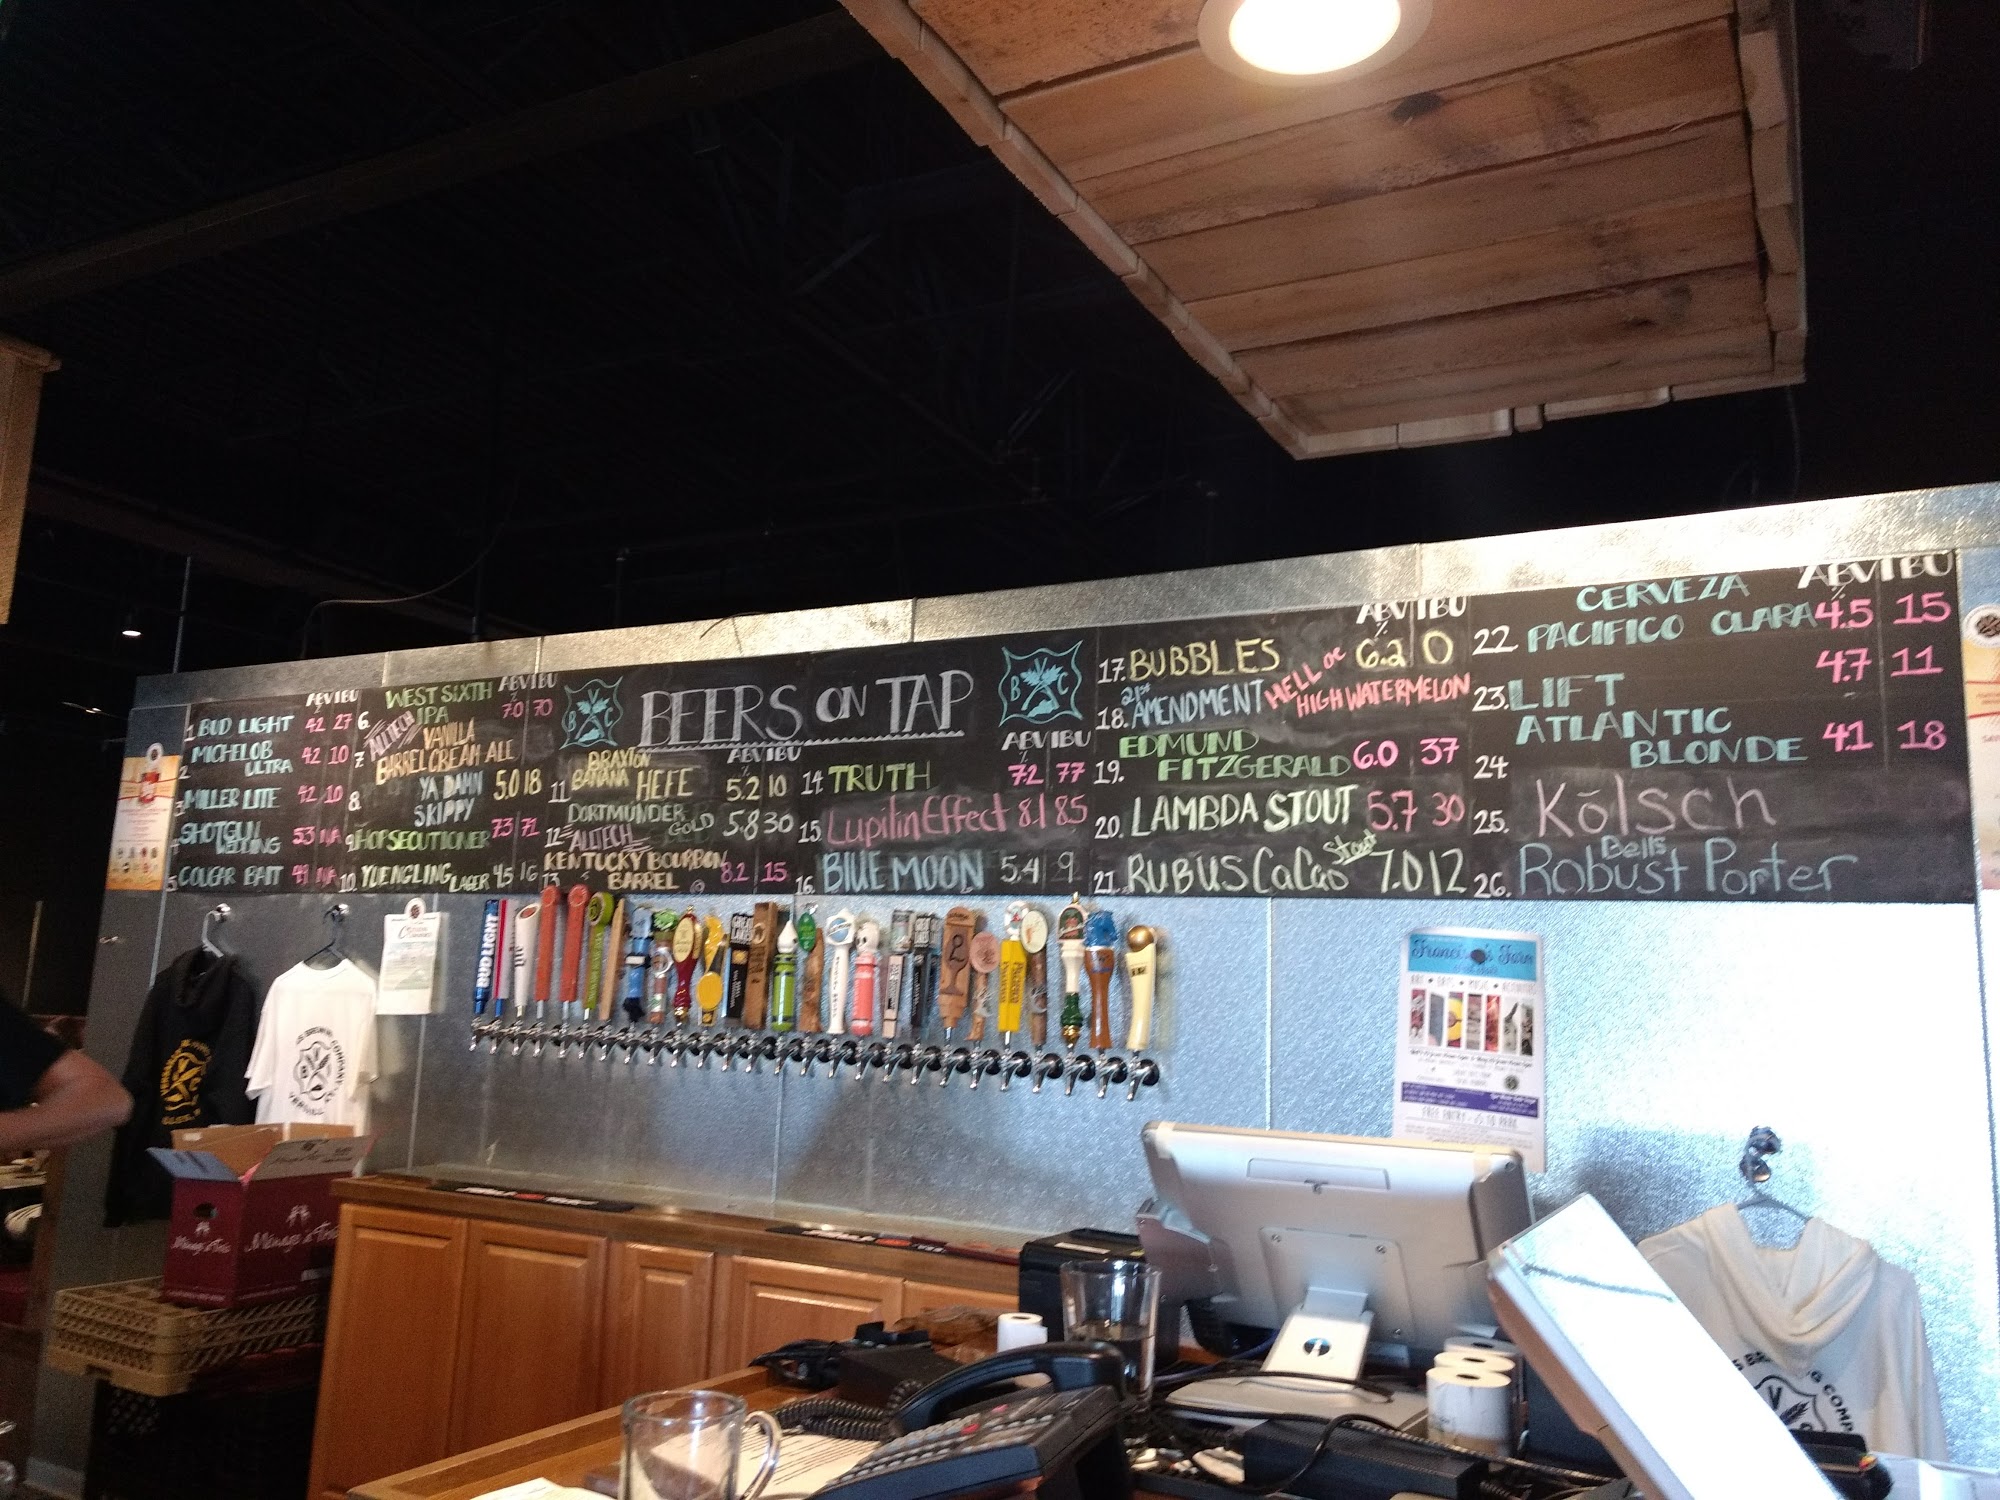 ABV IBU
%
1 BUD LIGHT 4.2 27
2. MICHELOB ULTRA 4.2 10
3 MILLER LITE 4.2 10
4. SHOTGUN WEDDING 5.3 NA
5. COUGAR BAIT 4.9 NA
ABV IBU
%
6. WEST SIXTH IPA 7.0 70
7. ALLTECH VANILLA
BARREL CREAM ALE
8. YA DAMN SKIPPY 5.0 18
9. HOPSECUTIONER 7.3 71
10. YUENGLING LAGER 4.5 16
B V C
BEERS ON TAP
B V C
ABV IBU
%
11. BRAXTON BANANA HEFE 5.2 10
12. DORTMUNDER GOLD 5.8 30
13. ALLTECH
KENTUCKY BOURBON
BARREL 8.2 15
ABV IBU
14. TRUTH 7.2 77
15. Lupulin Effect 8.1 85
16. BLUE MOON 5.4 9
ABV IBU
%
17. BUBBLES 6.2 0
18. 21st AMENDMENT HELL or HIGH WATERMELON
19. EDMUND FITZGERALD 6.0 37
20. LAMBDA STOUT 5.7 30
21. RUBUS CaCao Stout 7.0 12
ABV IBU
%
22. CERVEZA
PACIFICO CLARA 4.5 15
23. LIFT 4.7 11
24. ATLANTIC BLONDE 4.1 18
25. Kölsch
26. Bells Robust Porter
BUD LIGHT
GREAT LAKES
Pacifico
BREWING COMPANY
B V C
Ménage à Trois
Ménage à Trois
FREE ENTRY - $5 TO PARK
BREWING COMP
V